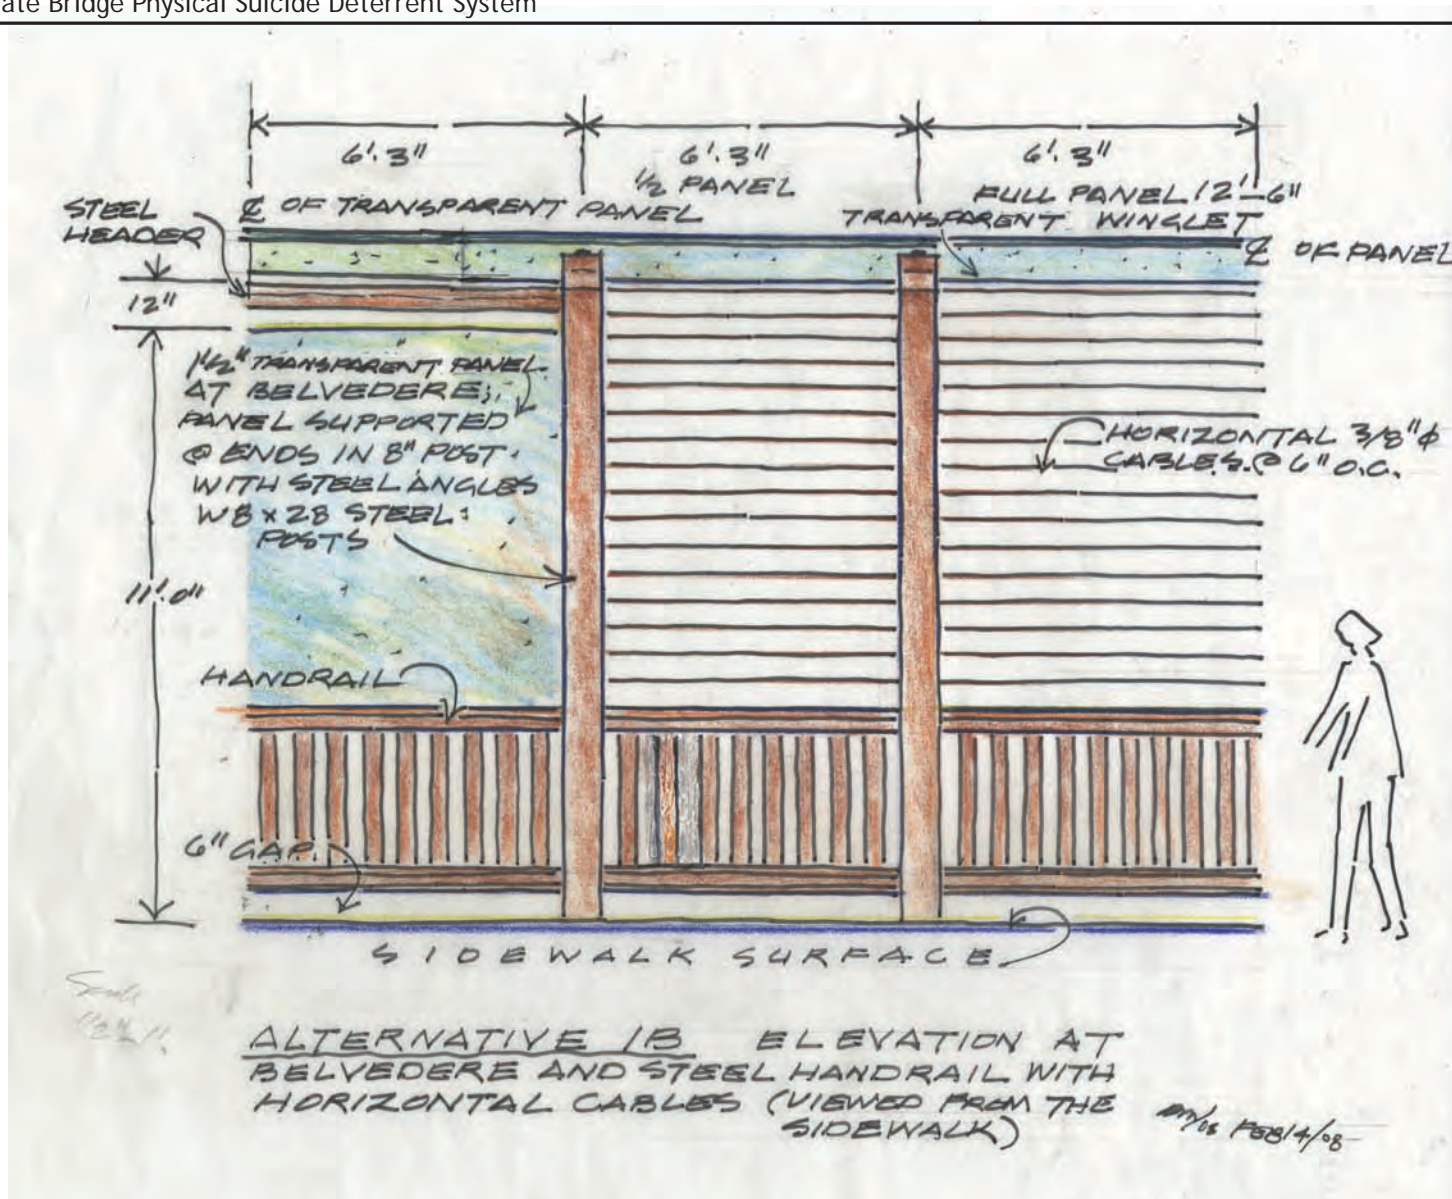 ate Bridge Physical Suicide Deterrent System
6'.3"
6'.3"
6'.3"
1/2 PANEL
FULL PANEL 12'-6"
STEEL
HEADER
℄ OF TRANSPARENT PANEL
TRANSPARENT WINGLET
℄ OF PANEL
12"
1 1/2" TRANSPARENT PANEL
AT BELVEDERE;
PANEL SUPPORTED
@ ENDS IN 8" POST.
WITH STEEL ANGLES
W8 x 28 STEEL
POSTS
HORIZONTAL 3/8"ϕ
CABLES @ 6" O.C.
11'.0"
HANDRAIL
6" GAP
SIDEWALK SURFACE
Scale
ALTERNATIVE 1B ELEVATION AT
BELVEDERE AND STEEL HANDRAIL WITH
HORIZONTAL CABLES (VIEWED FROM THE
SIDEWALK)
FEB14/08